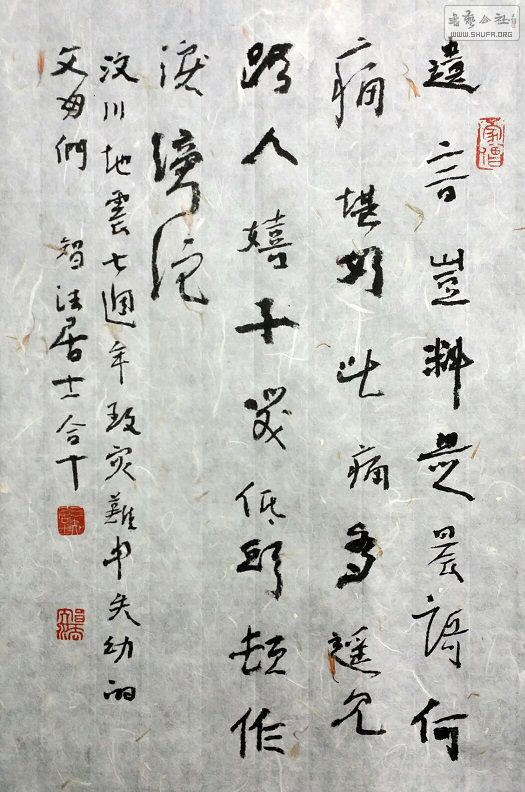 遺言豈料是晨語何
痛堪如此痛多遥見
路人嬉子笑低頭頓作
淚滂沱
汶川地震七週年致灾難中失幼的
父母們 智法居士合十
書藝公社
WWW.SHUFA.ORG